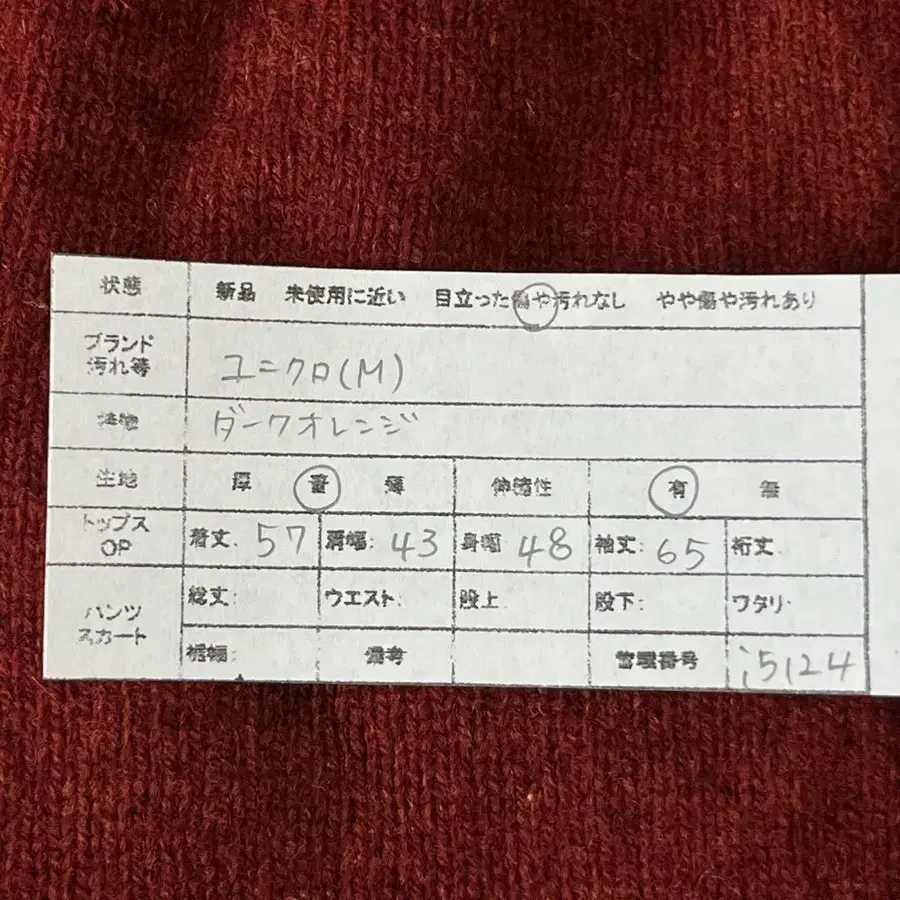 状態 新品 未使用に近い 目立った傷や汚れなし やや傷や汚れあり
ブランド
汚れ等 ユニクロ(M)
ダークオレンジ
生地 厚 普 薄 伸縮性 有 無
トップス
OP 着丈. 57 肩幅: 43 身幅 48 袖丈: 65 裄丈.
パンツ
スカート 総丈: ウエスト: 股上 股下: ワタリ
裾幅: 備考 管理番号 i5124